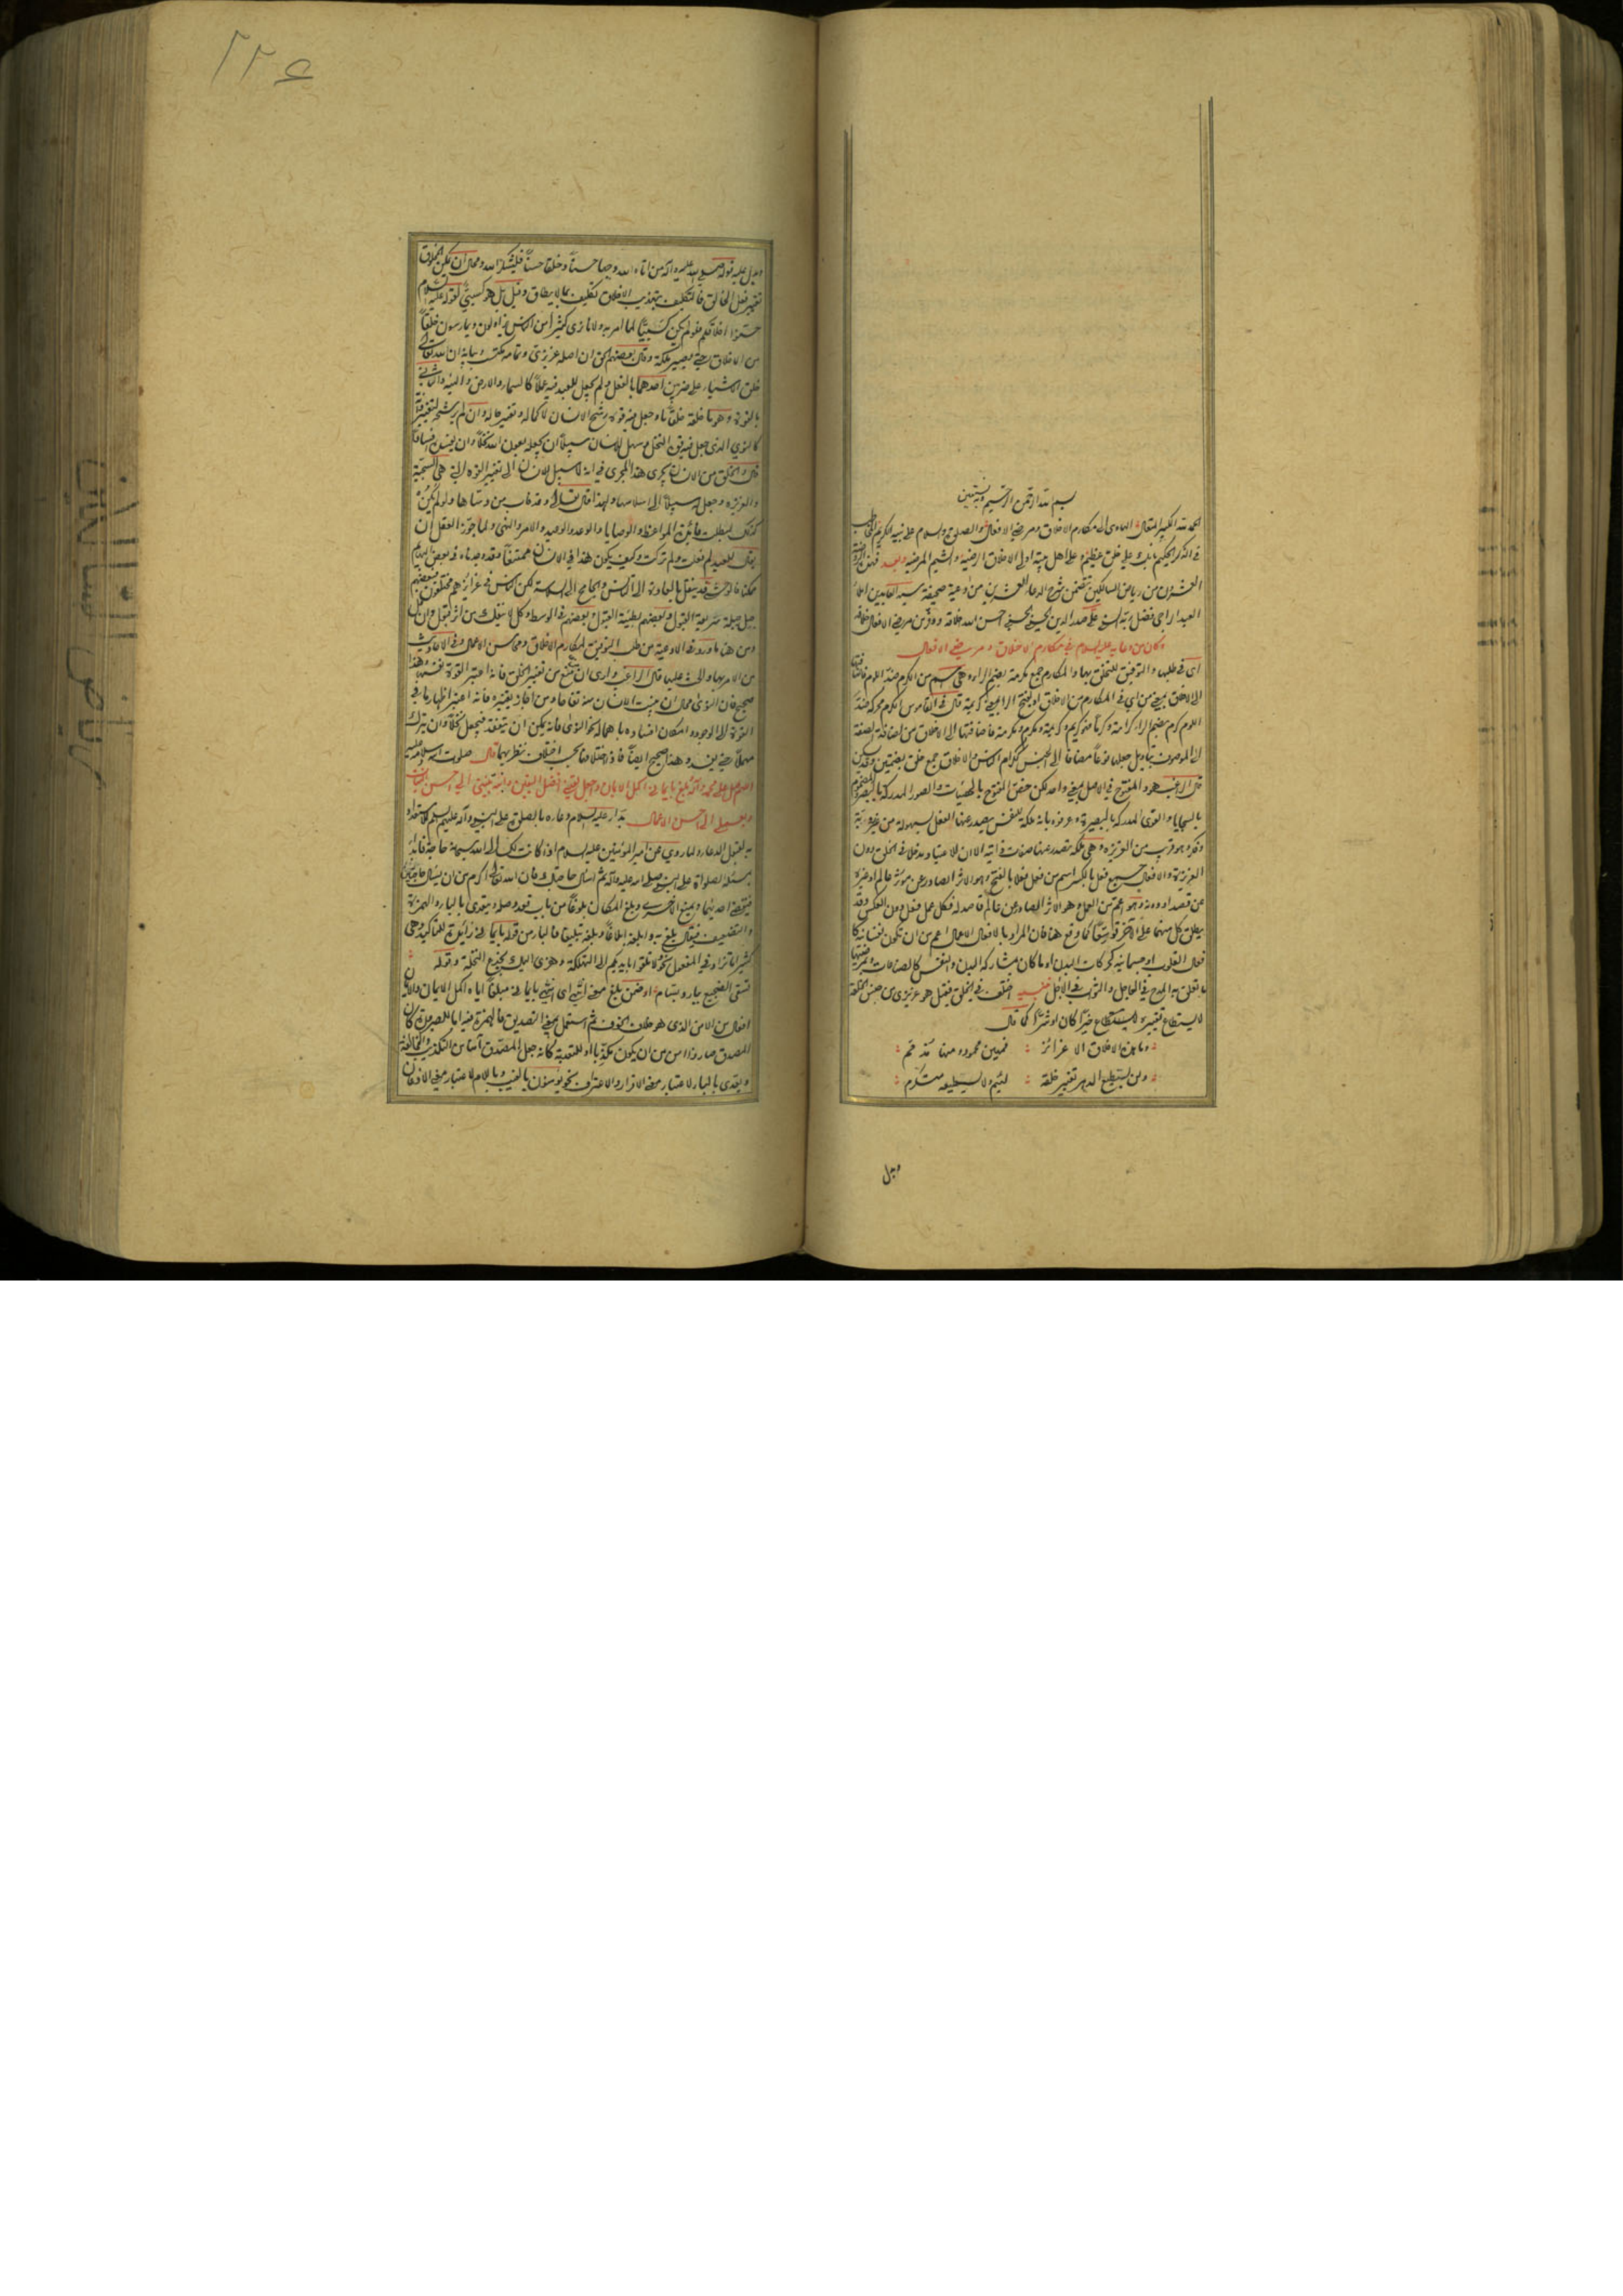 بسم الله الرحمن الرحيم وبه نستعين
الحمد لله الكبير المتعال الهادى الى مكارم الاخلاق ومرضى الافعال والصلوة والسلام على نبيه الكريم المخاطب
فى الذكر الحكيم بانك على خلق عظيم وعلى اهل بيته اولى الاخلاق الرضية والشيم المرضية وبعد فهذه الروضة
العشرون من رياض السالكين تتضمن شرح الدعاء العشرين من ادعية صحيفة سيد العابدين املاء
العبد الراجى فضل ربه السنى على صدر الدين الحسينى الحسنى احسن الله خلاقه ووفر من مرضى الافعال خلاقه
وكان من دعائه عليه السلام فى مكارم الاخلاق ومرضى الافعال
اى فى طلبها والتوفيق للتخلق بها والمكارم جمع مكرمة بضم الراء وهى اسم من الكرم ضد اللوم فاضافتها
الى الاخلاق بمعنى من اى فى المكارم من الاخلاق او بفتح الراء بمعنى كريمة قال فى القاموس الكرم محركة ضد
اللوم كرم بضم الراء كرامة وكرما فهو كريم وكريمة ومكرم ومكرمة فاضافتها الى الاخلاق من اضافة الصفة
الى الموصوف بتاويل جعلها نوعا مضافا الى الجنس ككرام الناس والاخلاق جمع خلق بضمتين وقد يسكن
قال الراغب هو والمفتوح فى الاصل بمعنى واحد لكن خص المفتوح بالهيئات والصور المدركة بالبصر والمضموم
بالسجايا والقوى المدركة بالبصيرة وعرفوه بانه ملكة للنفس يصدر عنها الفعل بسهولة من غير روية
وفكر وهو قريب من الغريزة وهى ملكة تصدر عنها صفات ذاتية الا ان للاعتياد مدخلا فى الخلق دون
الغريزة والافعال جمع فعل بالكسر اسم من فعل فعلا بالفتح وهو الاثر الصادر عن مؤثر عالم او غيره
عن قصد او دونه وهو اعم من العمل وهو الاثر الصادر عن عالم قاصد له فكل عمل فعل دون العكس وقد
يطلق كل منهما على الآخر توسعا كما وقع هنا فان المراد بالافعال الاعمال اعم من ان تكون نفسانية كا
فعال القلوب او جسمانية كحركات البدن او ما كان بمشاركة البدن والنفس كالصناعات ومرضيها
ما تعلق به المدح فى العاجل والثواب فى الآجل تنبيه اختلف فى الخلق فقيل هو غريزى من جنس الخلقة
لا يستطاع تغييره لمستطاع خيرا كان او شرا كما قال
وما هذه الاخلاق الا غرائز فمنهن محمود ومنها مذمم
ولن يستطيع الدهر تغيير خلقة لئيم ولا يستطيعه متكرم
ويدل
٢٢٤
ويدل عليه قوله صلى الله عليه وآله من اتاه الله وجها حسنا وخلقا حسنا فليشكر الله ومحال ان يمكن المخلوق
تغيير فعل الخالق فالتكليف بتهذيب الاخلاق تكليف بما لا يطاق وقيل بل هو كسبى لقوله عليه السلام
حسنوا اخلاقكم فلو لم يكن كسبيا لما امر به ولانا نرى كثيرا من الناس يزاولون ويمارسون خلقا
من الاخلاق حتى يصير ملكة وقال بعضهم الحق ان اصله غريزى وتمامه مكتسب وبيانه ان الله تعالى
خلق الاشياء على ضربين احدهما بالفعل ولم يجعل للعبد فيه عملا كالسماء والارض والهيئة والثانى
بالقوة وهو ما خلقه خلقا ما وجعل فيه قوة رشح الانسان لاكماله وتغيير حاله وان لم يرشحه لتغيير ذاته
كالنوى الذى جعل فيه قوة النخل وسهل للانسان سبيلا ان يجعله بعون الله نخلا وان يفسده افسادا
قال والخلق من الانسان يجرى هذا المجرى فى انه لا سبيل للانسان الى تغيير القوة التى هى السجية
والغريزة وجعل له سبيلا الى اسلاسها ولهذا قال تعالى وقد خاب من دساها ولو لم يكن
كذلك لبطلت فائدة المواعظ والوصايا والوعد والوعيد والامر والنهى ولما جوز العقل ان
يقال للعبد لم فعلت ولم تركت وكيف يكون هذا فى الانسان ممتنعا وقد وجدناه فى بعض البهائم
ممكنا فالوحشى قد ينقل بالعادة الى التانس والجامح الى السلاسة لكن الناس فى غرائزهم مختلفون فبعضهم
جبل جبلة سريعة القبول وبعضهم بطيئة القبول وبعضهم فى الوسط وكل لا ينفك من اثر قبول وان قل
ومن هنا ما ورد فى الادعية من طلب التوفيق لمكارم الاخلاق ومحاسن الاعمال وفى الاحاديث
من الامر بها والحث عليها قال الراغب وارى ان من منع من تغيير الخلق فانه اعتبر القوة نفسها وهذا
صحيح فان النوى محال ان ينبت الانسان منه تفاحا ومن اجاز تغييره فانه اعتبر اظهار ما فى
القوة الى الوجود وامكان افساده باهماله نحو النوى فانه يمكن ان يتفقد فيجعل نخلا وان يترك
مهملا حتى يعفن وهذا صحيح ايضا فاذا اختلافهما بحسب اختلاف نظريهما قال صلوات الله وسلامه عليه
اللهم صل على محمد وآله وبلغ بايمانى اكمل الايمان واجعل يقينى افضل اليقين وانته بنيتى الى احسن النيات
وبعملى الى احسن الاعمال بدأ عليه السلام دعاءه بالصلوة على النبى وآله عليهم السلام استعداده
به لقبول الدعاء ولما روى عن امير المؤمنين عليه السلام اذا كانت لك الى الله سبحانه حاجة فابدأ
بمسئلة الصلوة على النبى صلى الله عليه وآله ثم اسال حاجتك فان الله تعالى اكرم من ان يسئل حاجتين
فيقضى احديهما ويمنع الاخرى وبلغ المكان بلوغا من باب قعد وصله ويتعدى بالباء والهمزة
والتضعيف فيقال بلغ به وابلغه ابلاغا وبلغه تبليغا فالباء من قوله بايمانى زائدة للتاكيد وهى
كثيرا ما تزاد فى المفعول نحو لا تلقوا بايديكم الى التهلكة وهزى اليك بجذع النخلة وقوله
تسقى الضجيع ببارد بسام او ضمن بلغ معنى انته اى انته بايمانى مبلغا اياه اكمل الايمان والايمان
افعال من الامن الذى هو خلاف الخوف ثم استعمل بمعنى التصديق فالهمزة فيه اما للصيرورة كان
المصدق صار ذا امن من ان يكون مكذبا او للتعدية كانه جعل المصدق آمنا من التكذيب والمخالفة
ويعدى بالباء لاعتبار معنى الاقرار والاعتراف نحو يؤمنون بالغيب وباللام لاعتبار معنى الاذعان